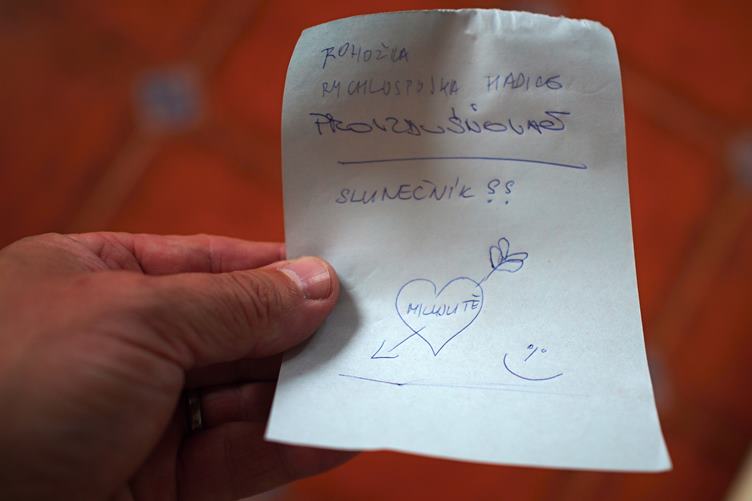 ROHOŽKA
RYCHLOSPOJKA HADICE
PROVZDUŠŇOVAČ
SLUNEČNÍK ??
MILUJU TĚ